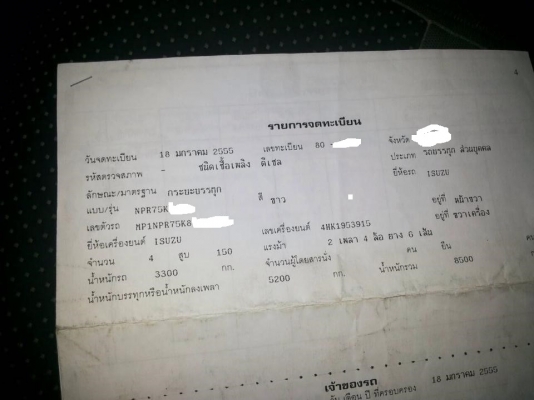 4
รายการจดทะเบียน
วันจดทะเบียน 18 มกราคม 2555 เลขทะเบียน 80 - จังหวัด
รหัสตรวจสภาพ - ชนิดเชื้อเพลิง ดีเซล ประเภท รถบรรทุก ส่วนบุคคล
ลักษณะ/มาตรฐาน กระบะบรรทุก สี ขาว ยี่ห้อรถ ISUZU
แบบ/รุ่น NPR75K
เลขตัวรถ MP1NPR75K8 เลขเครื่องยนต์ 4HK1953915 อยู่ที่ หน้าขวา
ยี่ห้อเครื่องยนต์ ISUZU อยู่ที่ ขวาเครื่อง
จำนวน 4 สูบ 150 แรงม้า 2 เพลา 4 ล้อ ยาง 6 เส้น
น้ำหนักรถ 3300 กก. จำนวนผู้โดยสารนั่ง คน ยืน คน
น้ำหนักบรรทุกหรือน้ำหนักลงเพลา 5200 กก. น้ำหนักรวม 8500
เจ้าของรถ
วัน เดือน ปี ที่ครอบครอง 18 มกราคม 2555